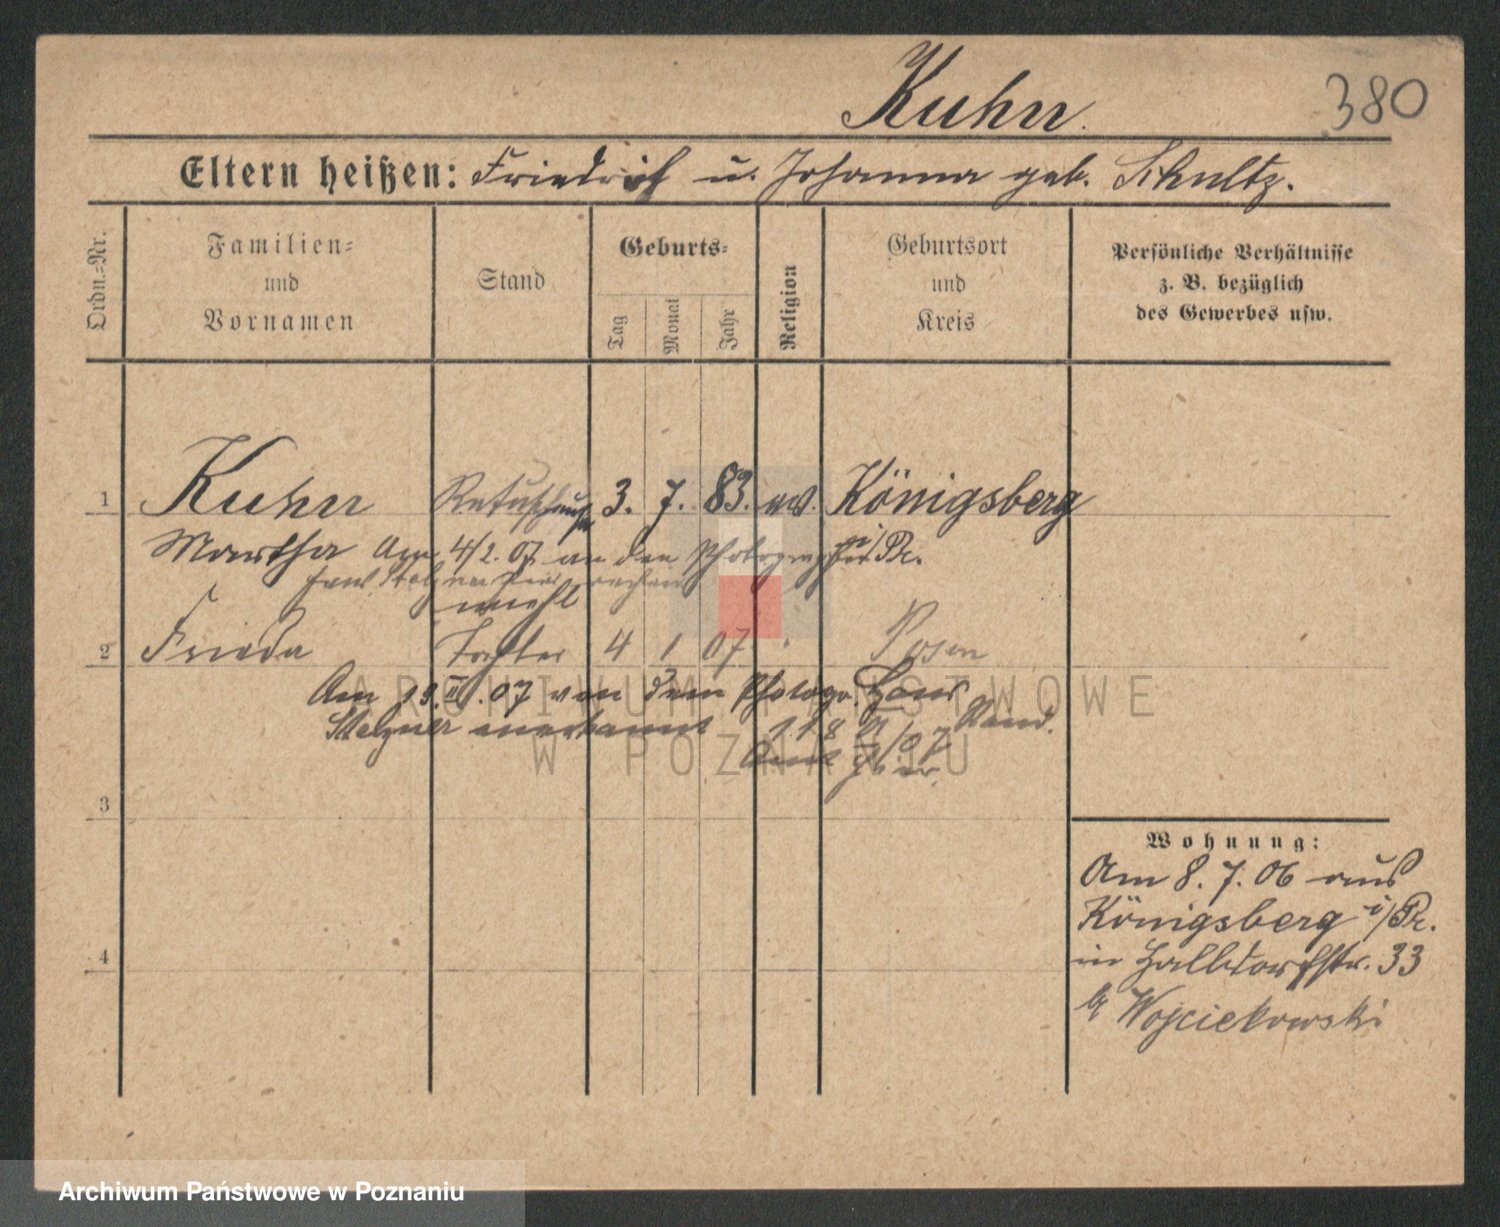 Kuhn.
380
Eltern heißen: Friedrich u. Johanna geb. Schultz.
Ordn.=Nr.
Familien=
und
Vornamen
Stand
Geburts=
Tag
Monat
Jahr
Religion
Geburtsort
und
Kreis
Persönliche Verhältnisse
z. B. bezüglich
des Gewerbes usw.
1 Kuhn 3. 7. 83. ev. Königsberg
Martha Am 4/2. 07 an den Photographen i/Pr.
2 Frieda Tochter 4 1 07 " Posen
Am 19. II. 07 von dem Photogr. Hans
Stelzner anerkannt
3
4
Wohnung:
Am 8. 7. 06 aus
Königsberg i/Pr.
in Halbdorfstr. 33
b/ Wojciekowski
ARCHIWUM PAŃSTWOWE
W POZNANIU
Archiwum Państwowe w Poznaniu